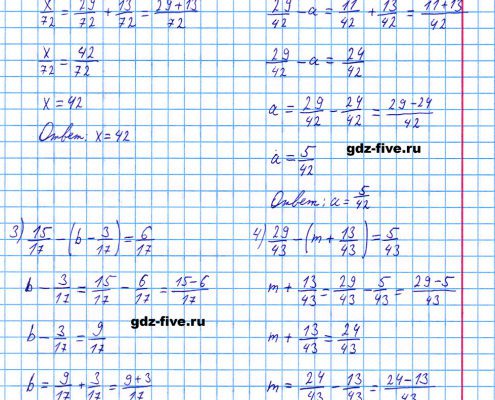 x/72 = 29/72 + 13/72 = 29+13/72
x/72 = 42/72
x = 42
Ответ: x = 42
29/42 - a = 11/42 + 13/42 = 11+13/42
29/42 - a = 24/42
a = 29/42 - 24/42 = 29-24/42
a = 5/42
gdz-five.ru
Ответ: a = 5/42
3) 15/17 - (b - 3/17) = 6/17
b - 3/17 = 15/17 - 6/17 = 15-6/17
gdz-five.ru
b - 3/17 = 9/17
b = 9/17 + 3/17 = 9+3/17
4) 29/43 - (m + 13/43) = 5/43
m + 13/43 = 29/43 - 5/43 = 29-5/43
m + 13/43 = 24/43
m = 24/43 - 13/43 = 24-13/43